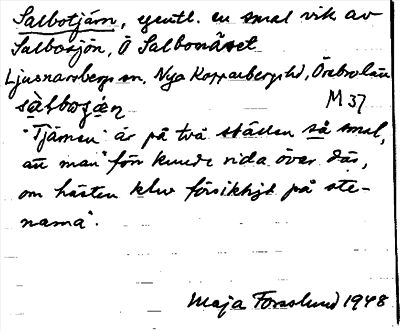 Salbotjärn, egentl. en smal vik av
Salbosjön, Ö Salbonäset
Ljusnarsbergs sn, Nya Kopparbergs hd, Örebro län
M 37
"Tjärnen" är på två ställen så smal,
att man "förr kunde rida över där,
om hästen klev försiktigt på ste-
narna".
Maja Forsslund 1948